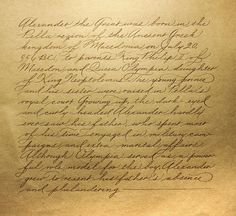 Alexander the Great was born in the
Pella region of the Ancient Greek
kingdom of Macedonia on July 20,
356 B.C., to parents King Philip II of
Macedon and Queen Olympia, daughter
of King Neoptolemus. The young prince
and his sister were raised in Pella's
royal court. Growing up, the dark-eyed
and curly-headed Alexander hardly
ever saw his father, who spent most
of his time engaged in military cam-
paigns and extra-marital affairs.
Although Olympia served as a power-
ful role model for the boy, Alexander
grew to resent his father's absence
and philandering.